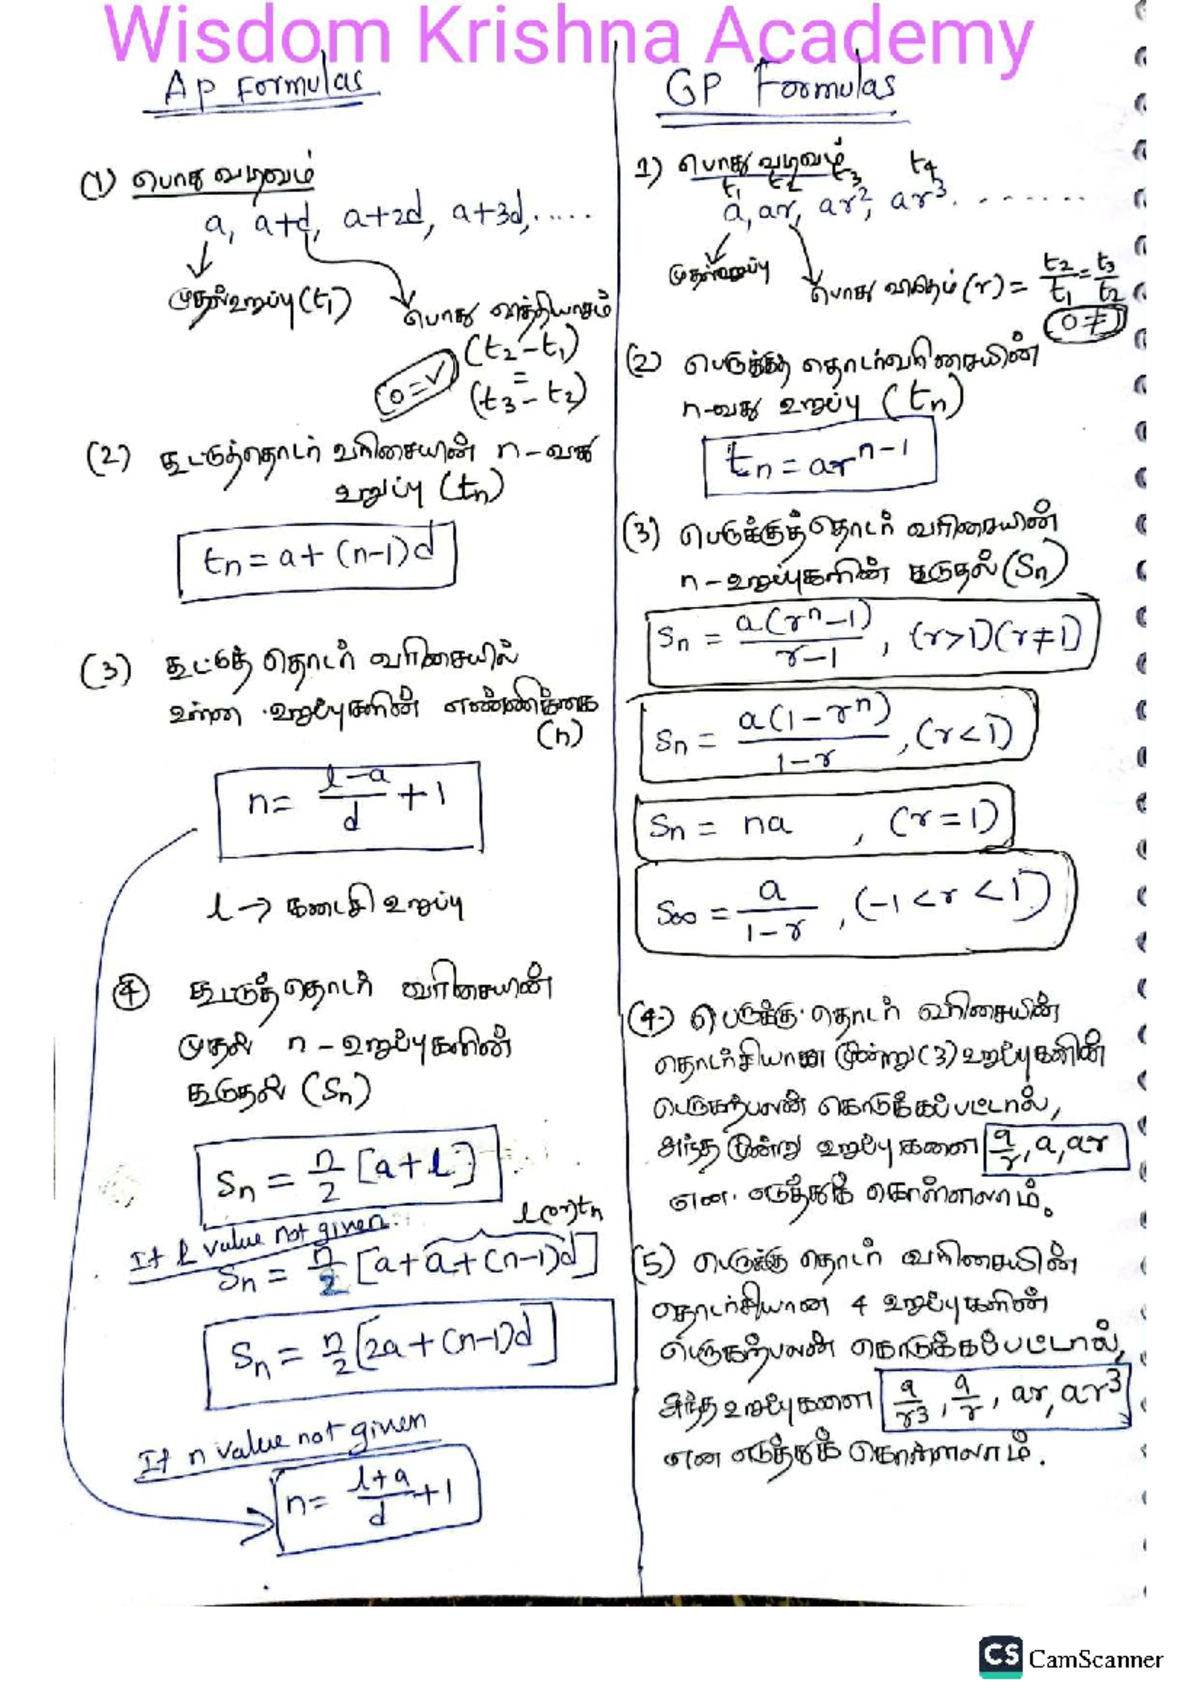 Wisdom Krishna Academy
AP Formulas
(1) பொது வடிவம்
a, a+d, a+2d, a+3d,.....
முதல் உறுப்பு (t₁)
பொது வித்தியாசம்
(t₂-t₁)
=
(t₃-t₂)
0=✓
(2) கூட்டுத்தொடர் வரிசையின் n-வது
உறுப்பு (tn)
tn = a+(n-1)d
(3) கூட்டுத் தொடர் வரிசையில்
உள்ள உறுப்புகளின் எண்ணிக்கை
(n)
n= (l-a)/d +1
l → கடைசி உறுப்பு
④ கூட்டுத் தொடர் வரிசையின்
முதல் n-உறுப்புகளின்
கூடுதல் (Sn)
Sn = n/2 [a+l]
If l value not given.
l(or)tn
Sn = n/2 [a+a+(n-1)d]
Sn = n/2 [2a+(n-1)d]
If n value not given
n= (l+a)/d +1
GP Formulas
1) பொது வடிவம்
t₁ t₂ t₃ t₄
a, ar, ar², ar³.......
முதல் உறுப்பு
பொது விகிதம் (r) = t₂/t₁ = t₃/t₂
0≠
(2) பெருக்கு தொடர்வரிசையின்
n-வது உறுப்பு (tn)
tn = ar^(n-1)
(3) பெருக்குத்தொடர் வரிசையின்
n-உறுப்புகளின் கூடுதல் (Sn)
Sn = a(rⁿ-1)/(r-1), (r>1)(r≠1)
Sn = a(1-rⁿ)/(1-r), (r<1)
Sn = na , (r=1)
S∞ = a/(1-r), (-1<r<1)
(4) பெருக்கு தொடர் வரிசையின்
தொடர்சியான மூன்று (3) உறுப்புகளின்
பெருகற்பலன் கொடுக்கப்பட்டால்,
அந்த மூன்று உறுப்புகளை a/r, a, ar
என எடுத்துக் கொள்ளலாம்.
(5) பெருக்கு தொடர் வரிசையின்
தொடர்சியான 4 உறுப்புகளின்
பெருகற்பலன் கொடுக்கப்பட்டால்,
அந்த உறுப்புகளை a/r³, a/r, ar, ar³
என எடுத்துக் கொள்ளலாம்.
CS CamScanner